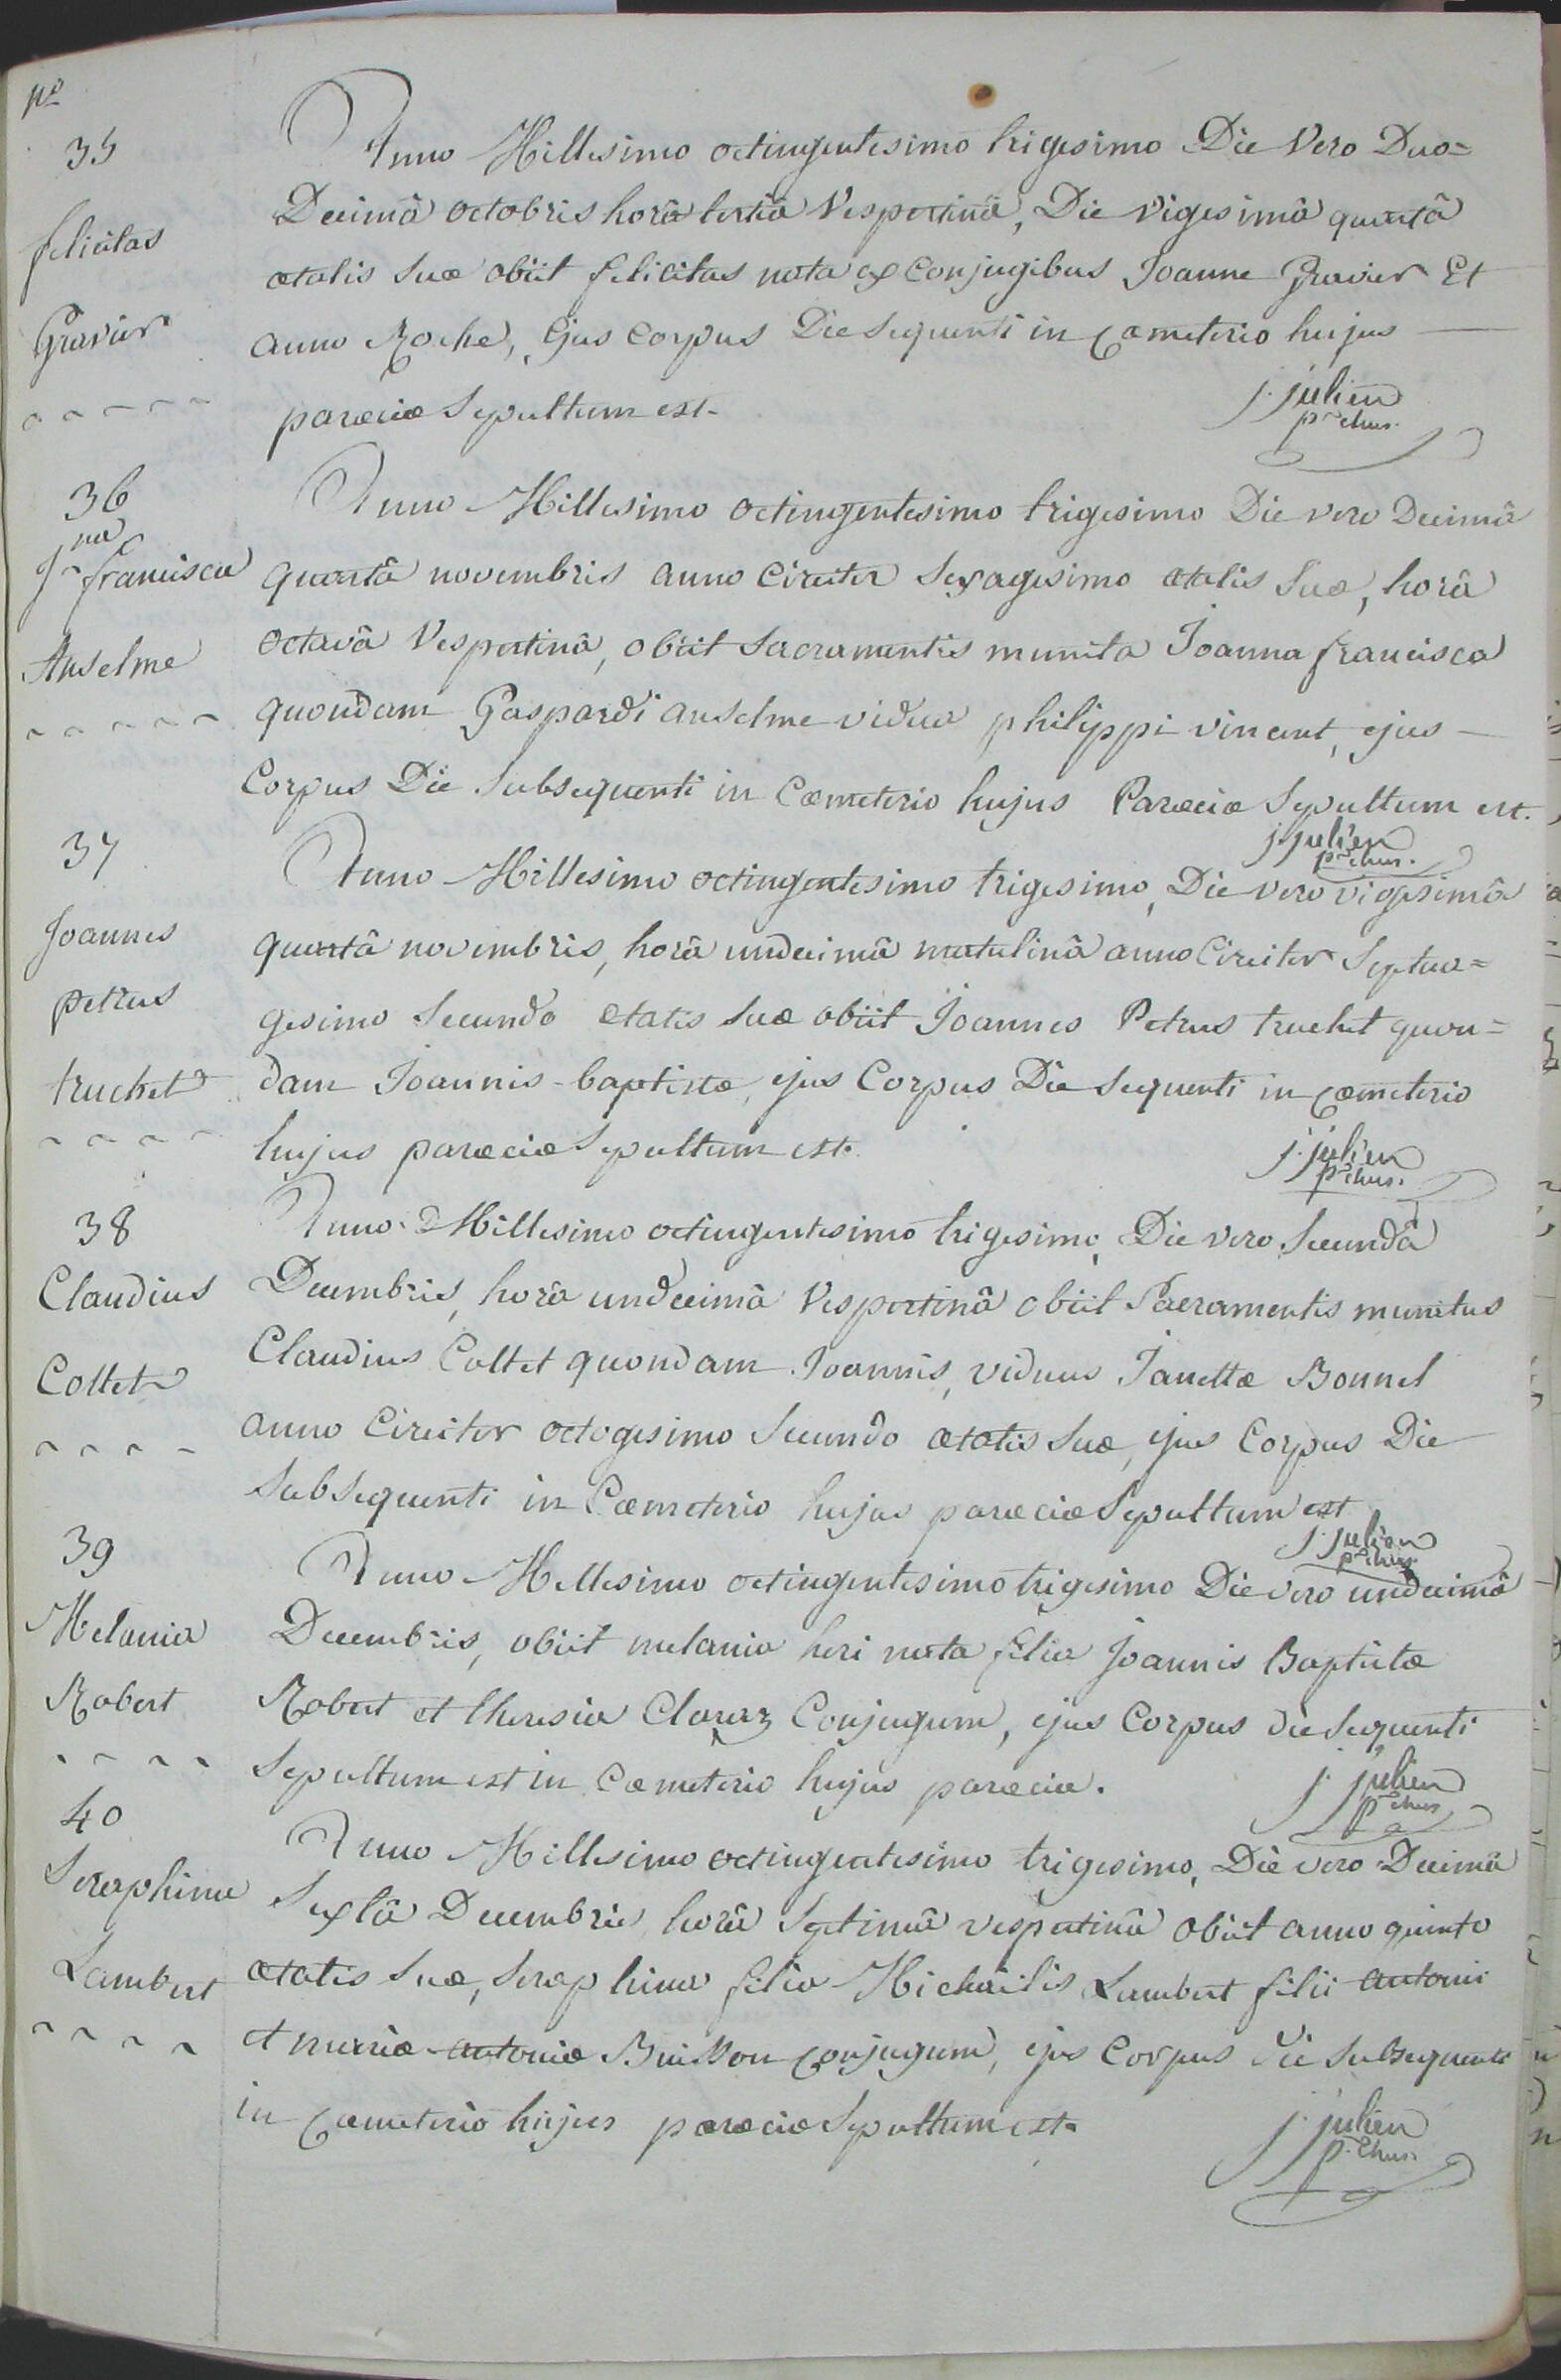 no
35
felicitas
Gravier
Anno Millesimo octingentesimo trigesimo Die Vero Duo=
Decimâ octobris horâ tertiâ Vespertinâ, Die vigesimâ quartâ
ætatis suæ obiit felicitas nata ex conjugibus Joanne Gravier Et
anna Roche, Ejus corpus Die sequenti in Cœmeterio hujus
parœciæ Sepultum est.
j. julien
p~chus.
36
Jna francisca
Anselme
Anno Millesimo octingentesimo trigesimo Die vero Decimâ
quartâ novembris anno circiter sexagesimo ætatis suæ, horâ
octavâ Vespertinâ, obiit sacramentis munita Joanna francisca
quondam Gaspardi anselme vidua philippi vincent, ejus
Corpus Die subsequenti in Cœmeterio hujus Parœciæ Sepultum est.
j. julien
p~chus.
37
Joannes
petrus
truchet
Anno Millesimo octingentesimo trigesimo, Die vero vigesimâ
quartâ novembris, horâ undecimâ matutinâ anno Circiter Septua=
gesimo secundo ætatis suæ obiit Joannes Petrus truchet quon=
dam Joannis-baptistæ, ejus Corpus Die sequenti in cœmeterio
hujus parœciæ Sepultum est.
j. julien
p~chus.
38
Claudius
Collet
Anno Millesimo octingentesimo trigesimo, Die vero Secundâ
Decembris, horâ undecimâ Vespertinâ obiit Sacramentis munitus
Claudius Collet quondam Joannis, viduus Janettæ Bonnel
anno circiter octogesimo Secundo ætatis suæ, ejus Corpus Die
subsequenti in Cœmeterio hujus parœciæ Sepultum est
j. julien
p~chus.
39
Melania
Robert
Anno Millesimo octingentesimo trigesimo Die vero undecimâ
Decembris, obiit melania heri nata filia Joannis Baptistæ
Robert et theresia Claraz Conjugum, ejus Corpus die sequenti
Sepultum est in Cœmeterio hujus parœciæ.
j. julien
p~chus
40
Seraphina
Lambert
Anno Millesimo octingentesimo trigesimo, Die vero Decimâ
Sextâ Decembris horâ Septimâ vespertinâ obiit anno quinto
ætatis suæ, seraphina filia Michaëlis Lambert filii antonii
et mariæ antoniæ Buisson conjugum, ejus Corpus die subsequenti
in Cœmeterio hujus parœciæ Sepultum est.
j. julien
p~chus.